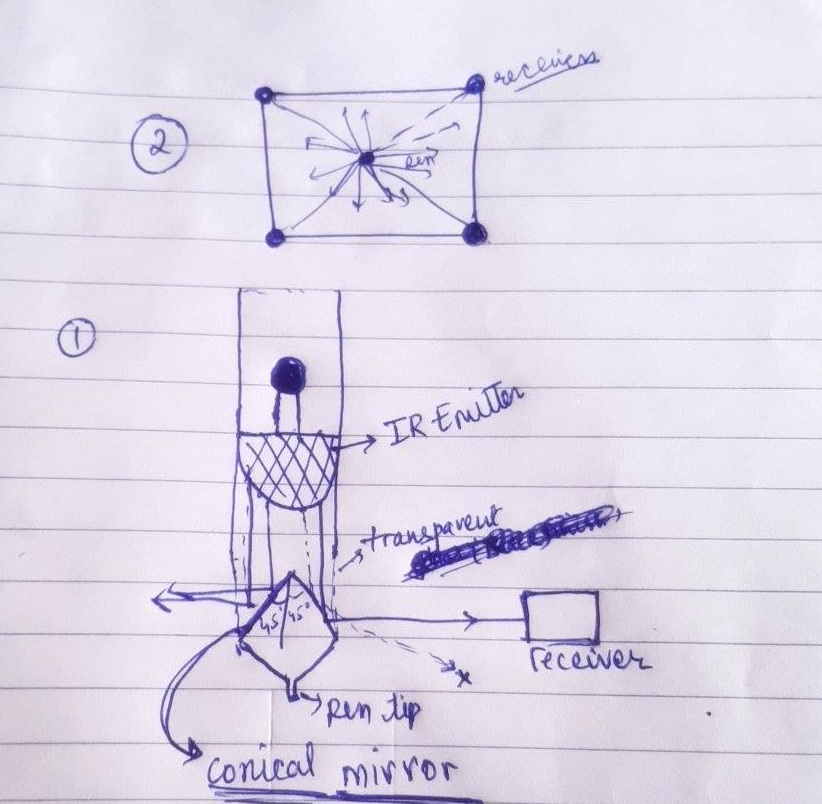 receivers
②
pen
①
IR Emitter
transparent
45° 45°
receiver
x
pen tip
conical mirror